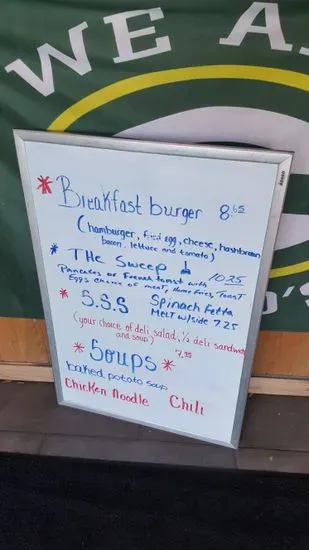 WE A
* Breakfast burger 8.65
(hamburger, fried egg, cheese, hashbrown
bacon, lettuce and tomato)
* THE Sweep 10.25
Pancakes or French toast with
Eggs choice of meat, Home Fries, Toast
* S.S.S Spinach Fetta
Melt w/side 7.25
(your choice of deli salad, 1/2 deli sandwich
and soup) 7.95
* Soups *
baked potato soup
Chicken Noodle Chili